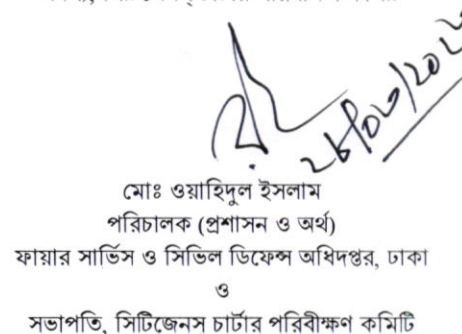 মোঃ ওয়াহিদুল ইসলাম
পরিচালক (প্রশাসন ও অর্থ)
ফায়ার সার্ভিস ও সিভিল ডিফেন্স অধিদপ্তর, ঢাকা
ও
সভাপতি, সিটিজেনস চার্টার পরিবীক্ষণ কমিটি